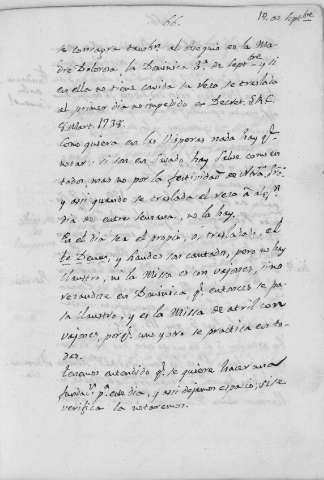 66.
12. de Septbre
se consagra tambn. al obsequio en la Ma-
dre Dolorosa, la Dominica 3ª de Septbre y si
en ella no tiene cavida su Rezo, se traslada
al primer dia no impedido ex Decret. S.R.C.
Mart. 1735.
Como quiera en las Visperas nada hay q.
notar: si son en Savado hay Salve como en
todos, mas no por la festividad de Ntra. Sra.
y asi quando se traslada el rezo a algn
dia de entre semana, no la hay.
En el dia sea el propio, o, traslado, el
te Deum, y Laudes son cantado, pero no hay
Claustro, ni la Missa es con vajones, sino
rezandose en Dominica q. entonces se pa-
sa Claustro, y es la Missa de atril con
vajones, porq. uno y otro se practica en to-
das.
tenemos entendido q. se quiere hacer una
fundan. pa. este dia, y asi dejamos espacio; si se
verifica la notaremos.